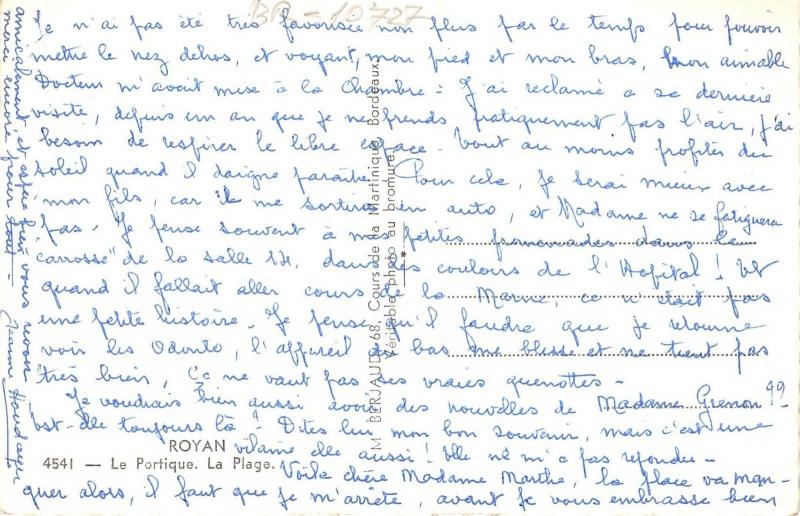 BR-10727
Je n'ai pas été très favorisée non plus par le temps pour pouvoir
mettre le nez dehos, et voyant, mon pied et mon bras, mon aimable
Docteur m'avait mise à la chambre : J'ai reclamé a sa dernière
visite, depuis un an que je ne prends pratiquement pas l'air, j'ai
besoin de respirer le libre espace - tout au moins profiter du
soleil quand il daigne paraître. Pour cela, je serai mieux avec
mon fils, car ils me sortiront en auto, et Madame ne se fatiguera
pas - Je pense souvent à mes petites promenades dans le
"carrosse" de la salle 14, dans les couloirs de l'Hopital ! Et
quand il fallait aller cours de la Marne, ce n'était pas
une petite histoire. Je pense qu'il faudra que je retourne
voir les Odonto, l'appareil du bas me blesse et ne tient pas
très bien, Ça ne vaut pas ses vraies quenottes -
Je voudrais bien aussi avoir des nouvelles de Madame Grenon !?
est-elle toujours là ? Dites lui mon bon souvenir, mais c'est une
vilaine elle aussi ! Elle ne m'a pas repondu -
Voilà chère Madame Marthe, la place va man-
quer alors, il faut que je m'arrète, avant je vous embrasse bien
amicalement, et espère bien vous revoir -
merci encore pour tout - Jeanne
ROYAN
4541 — Le Portique. La Plage.
M. BERJAUD - 68, Cours de la Martinique, Bordeaux
Véritable photo au bromure